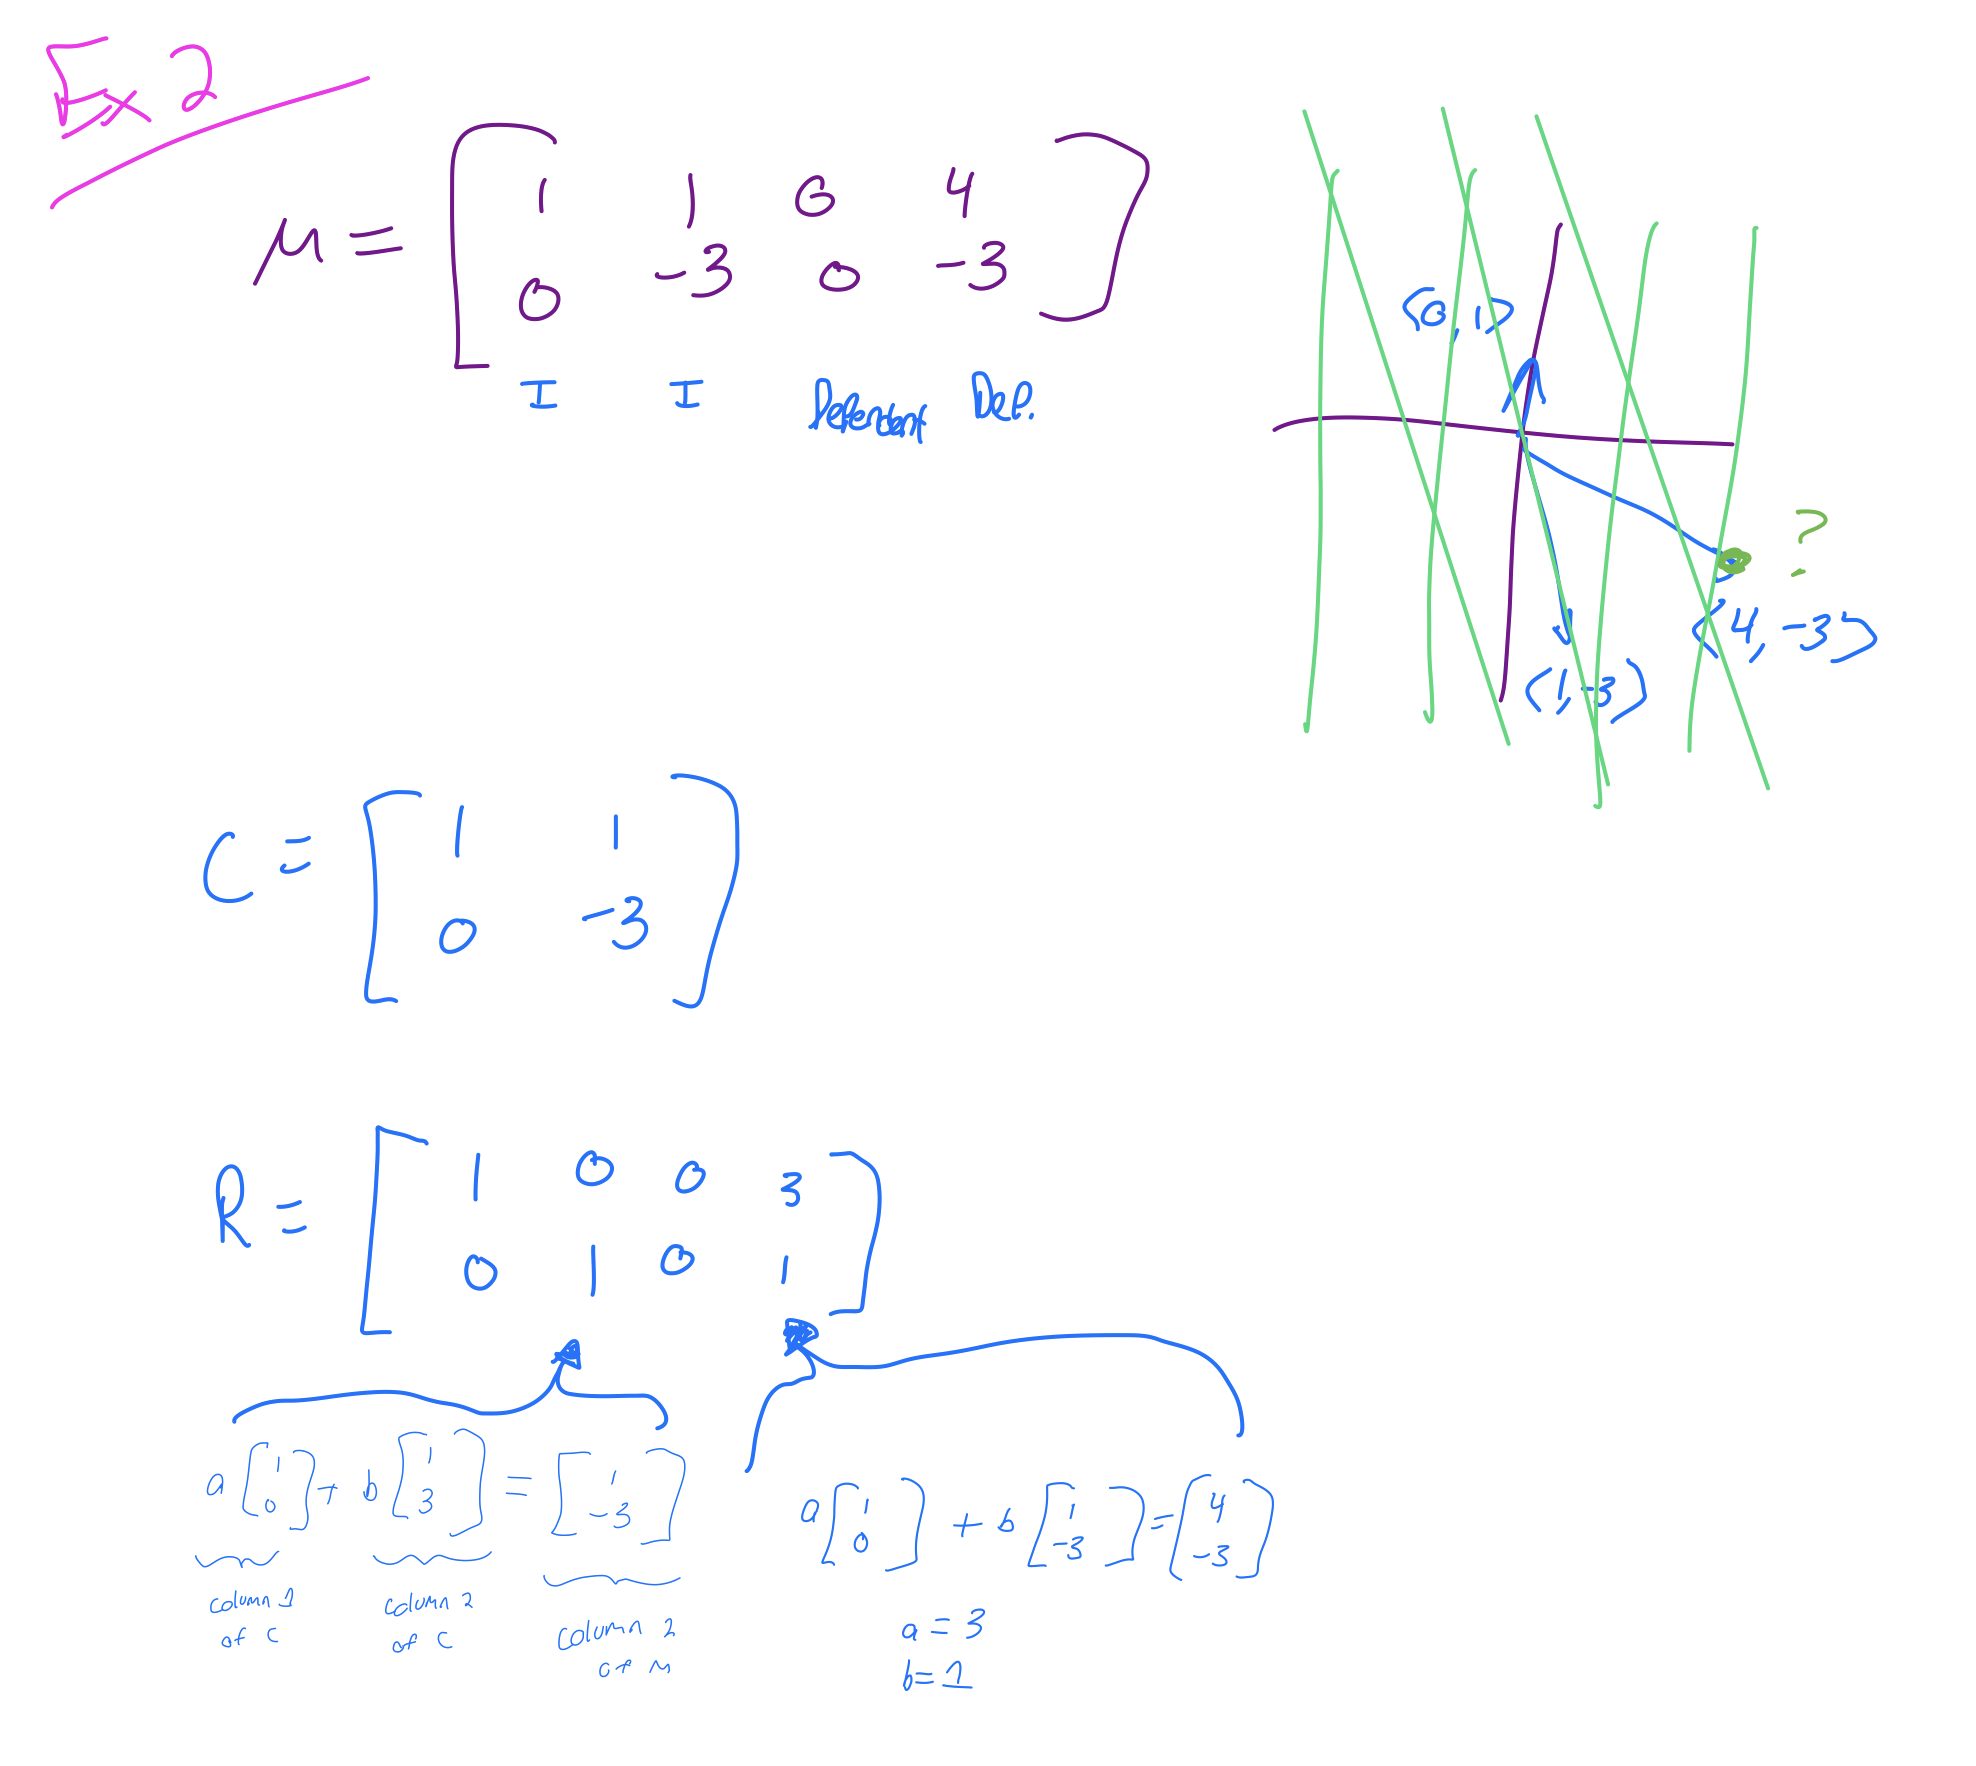 Ex 2
M = [ 1 1 0 4
0 -3 0 -3 ]
I I Dependent Dep.
(0,1)
?
(4,-3)
(1,-3)
C = [ 1 1
0 -3 ]
R = [ 1 0 0 3
0 1 0 1 ]
a [ 1 0 ] + b [ 1 3 ] = [ 1 -3 ]
column 1 of C
column 2 of C
column 2 of M
a [ 1 0 ] + b [ 1 -3 ] = [ 4 -3 ]
a = 3
b = 1